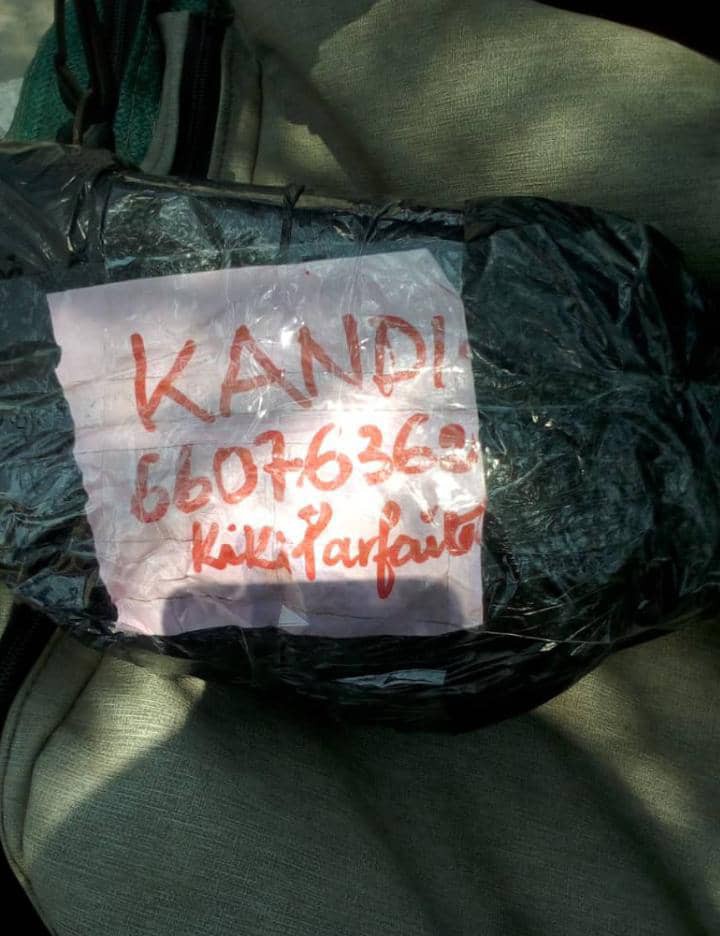 KANDI
66076368
KiKi Parfaite